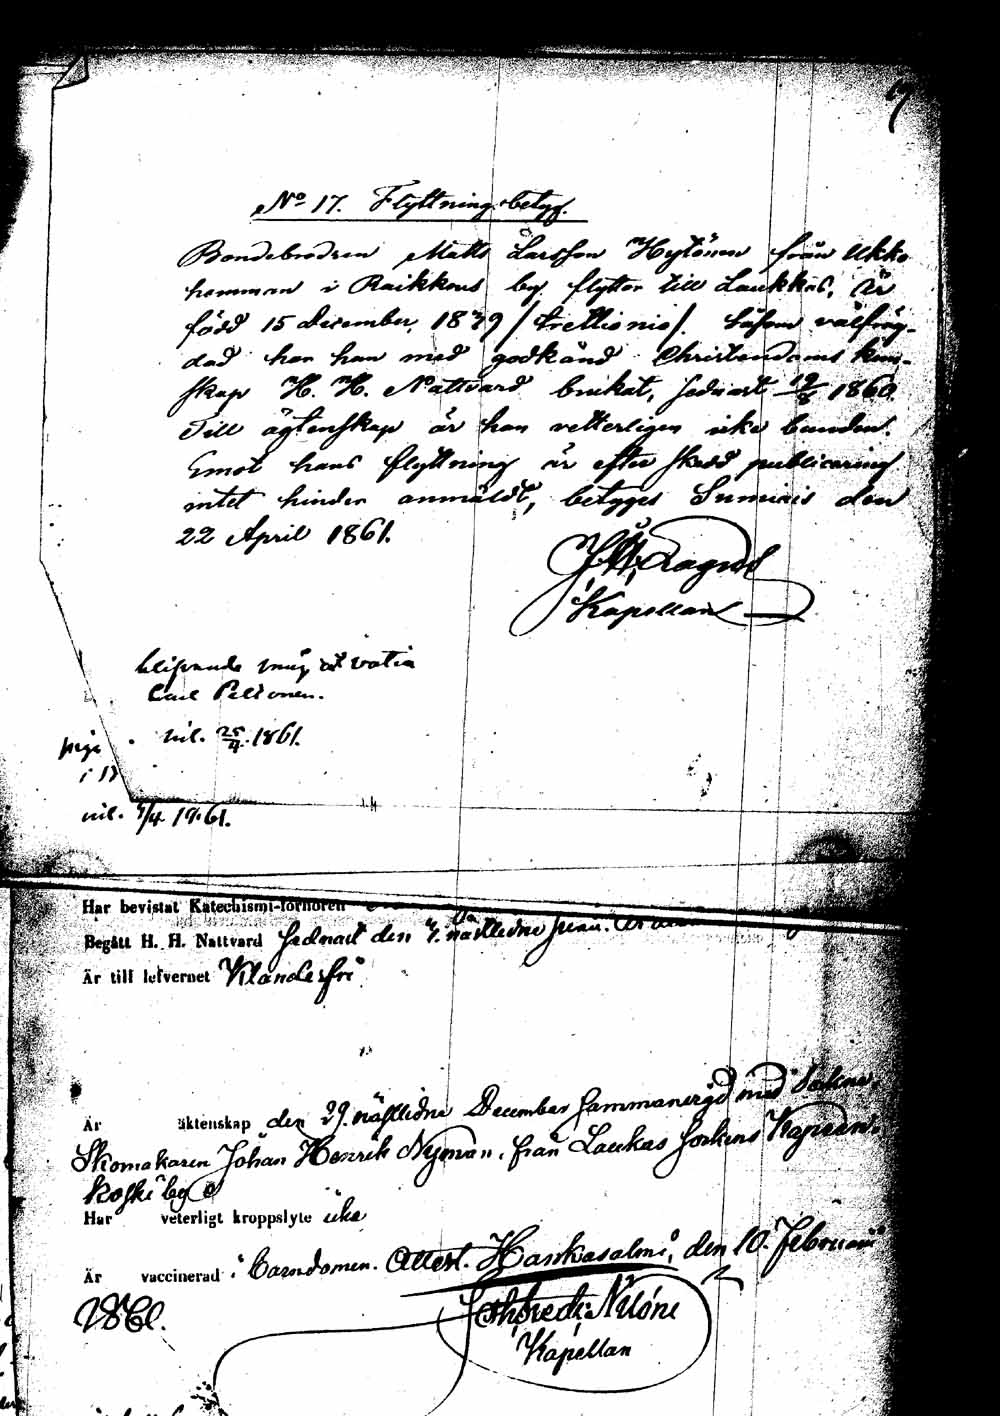 No 17. Flyttningsbetyg.
Bondebrodren Matts Larsson Hytönen från Ukko
hemman i Raikkous by flyttar till Laukkas, är
född 15 december, 1839 / trettionio /. Såsom välfräg-
dad har han med godkänd Christendoms kun-
skap H. H. Nattvard brukat, sednast 19/8 1860.
Till ägtenskap är han vetterligen icke bunden.
Emot hans flyttning är efter skedd publicering
intet hinder anmäldt, betygges Sumiais den
22 April 1861.
Kapellan
Carl Peltonen.
nil. 25/4. 1861.
piga
i 13
nil. 4/4 1961.
Har bevistat Katechismi-förhören
Begått H. H. Nattvard sednast den nästledne
Är till lefvernet Klanderfri
Är äktenskap den 29. nästledne December sammanvigd med
Skomakaren Johan Henrik Nyman, från Laukas Sockens
koski by
Har veterligt kroppslyte icke
Är vaccinerad i barndomen. Attest. Hankasalmi, den 10. Februarii
1861.
Kapellan